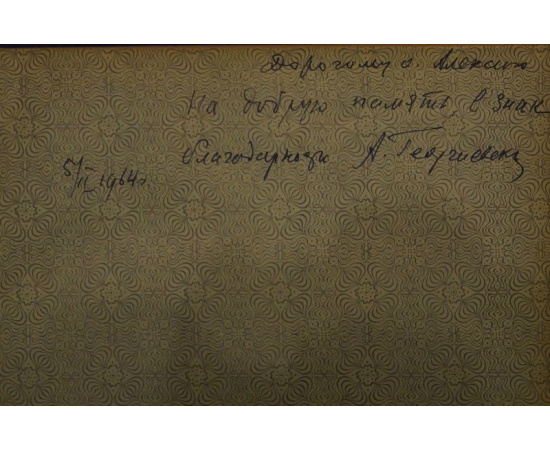 Дорогому о. Алексию
На добрую память, в знак
благодарности А. Георгиевский
5/II 1964г.